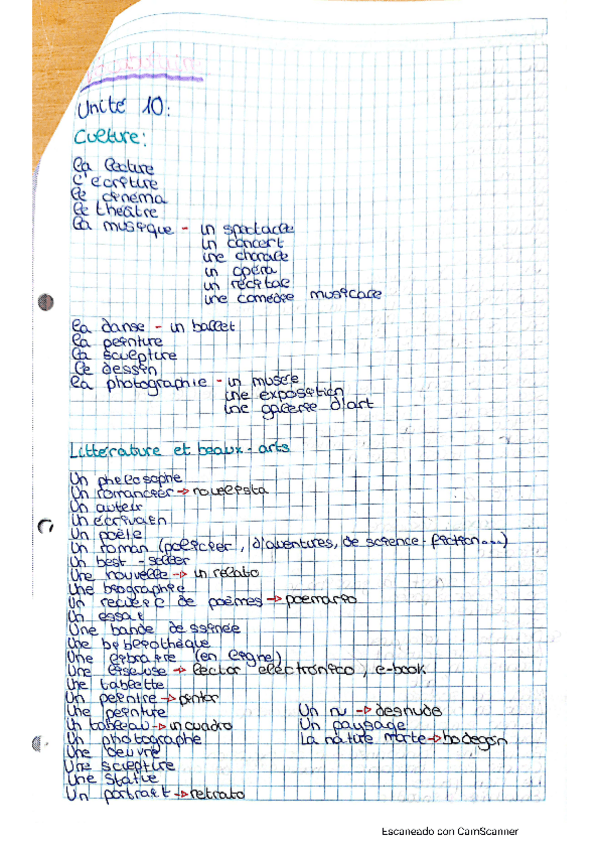 Unité 10:
Culture:
la lecture
l'écriture
le cinéma
le théâtre
la musique - un spectacle
un concert
une chorale
un opéra
un récital
une comédie musicale
la danse - un ballet
la peinture
la sculpture
le dessin
la photographie - un musée
une exposition
une galerie d'art
Littérature et beaux-arts
Un philosophe
Un romancier → novelista
Un auteur
Un écrivain
Un poète
Un roman (policier, d'aventures, de science-fiction...)
Un best-seller
Une nouvelle → un relato
Une biographie
Un recueil de poèmes → poemario
Un essai
Une bande dessinée
Une bibliothèque
Une librairie (en ligne)
Une liseuse → lector electrónico, e-book
Une tablette
Un peintre → pintor
Une peinture Un nu → desnudo
Un tableau → un cuadro Un paysage
Un photographe La nature morte → bodegón
Une oeuvre
Une sculpture
Une statue
Un portrait → retrato
Escaneado con CamScanner